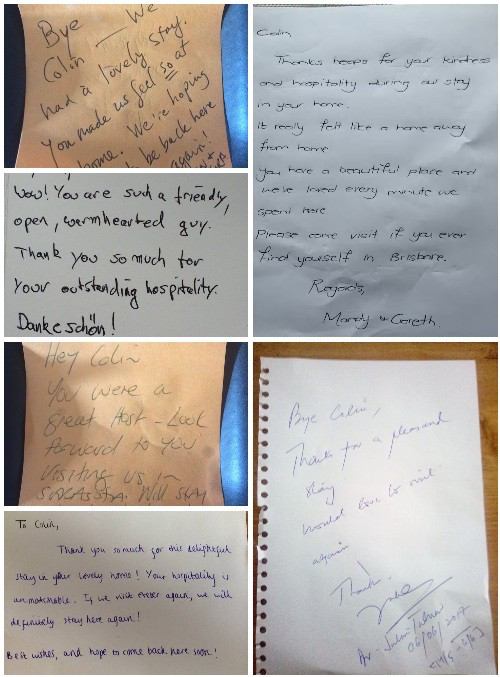 Bye
Colin — We
had a lovely stay.
You made us feel so at
home. We're hoping
be back here
again!
Wow! You are such a friendly,
open, warmhearted guy.
Thank you so much for
your outstanding hospitality.
Dankeschön!
Hey Colin
You were a
great Host - Look
forward to you
visiting us in
Will stay
To Colin,
Thank you so much for this delightful
stay in your lovely home! Your hospitality is
unmatchable. If we visit again, we will
definitely stay here again!
Best wishes, and hope to come back here soon!
Colin,
Thanks heaps for your kindness
and hospitality during our stay
in your home.
It really felt like a home away
from home
You have a beautiful place and
we've loved every minute we
spent here
Please come visit if you ever
find yourself in Brisbane.
Regards,
Mandy & Gareth.
Bye Colin,
Thanks for a pleasand
stay
would love to visit
again
Thanks
06/06/2017